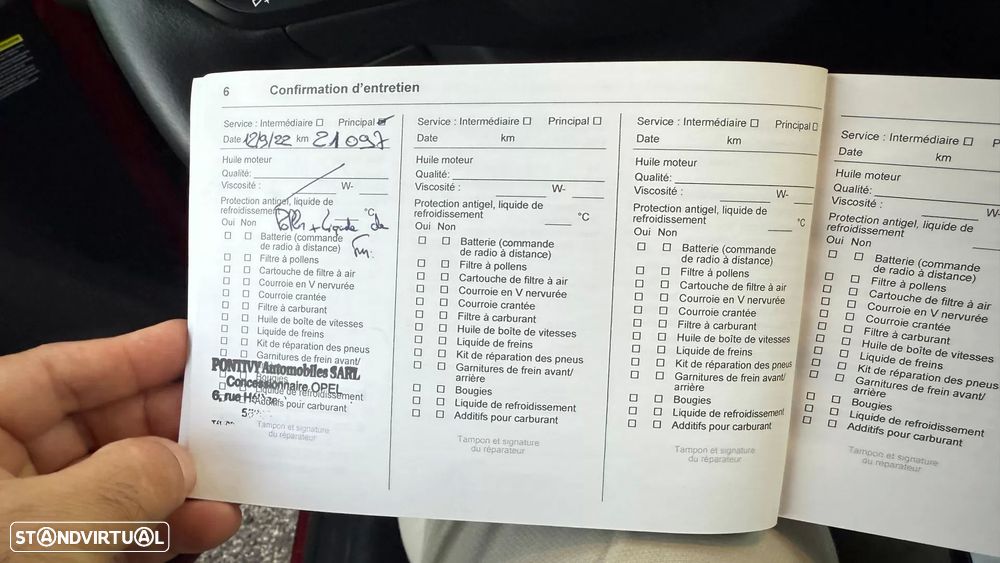 6 Confirmation d'entretien
Service : Intermédiaire Principal
Date 12/9/22 km 21097
Huile moteur
Qualité:
Viscosité : W-
Protection antigel, liquide de
refroidissement °C
+ Liquide de
Oui Non
Batterie (commande
de radio à distance)
Filtre à pollens
Cartouche de filtre à air
Courroie en V nervurée
Courroie crantée
Filtre à carburant
Huile de boîte de vitesses
Liquide de freins
Kit de réparation des pneus
Garnitures de frein avant/
PONTIVY Automobiles SARL
Concessionnaire OPEL
Bougies
Liquide de refroidissement
6, rue
Additifs pour carburant
Tampon et signature
du réparateur
Service : Intermédiaire Principal
Date km
Huile moteur
Qualité:
Viscosité : W-
Protection antigel, liquide de
refroidissement °C
Oui Non
Batterie (commande
de radio à distance)
Filtre à pollens
Cartouche de filtre à air
Courroie en V nervurée
Courroie crantée
Filtre à carburant
Huile de boîte de vitesses
Liquide de freins
Kit de réparation des pneus
Garnitures de frein avant/
arrière
Bougies
Liquide de refroidissement
Additifs pour carburant
Tampon et signature
du réparateur
Service : Intermédiaire Principal
Date km
Huile moteur
Qualité:
Viscosité : W-
Protection antigel, liquide de
refroidissement °C
Oui Non
Batterie (commande
de radio à distance)
Filtre à pollens
Cartouche de filtre à air
Courroie en V nervurée
Courroie crantée
Filtre à carburant
Huile de boîte de vitesses
Liquide de freins
Kit de réparation des pneus
Garnitures de frein avant/
arrière
Bougies
Liquide de refroidissement
Additifs pour carburant
Tampon et signature
du réparateur
Service : Intermédiaire P
Date km
Huile moteur
Qualité:
Viscosité : W-
Protection antigel, liquide de
refroidissement
Oui Non
Batterie (commande
de radio à distance)
Filtre à pollens
Cartouche de filtre à air
Courroie en V nervurée
Courroie crantée
Filtre à carburant
Huile de boîte de vitesses
Liquide de freins
Kit de réparation des pneus
Garnitures de frein avant/
arrière
Bougies
Liquide de refroidissement
Additifs pour carburant
Tampon et signature
du réparateur
STANDVIRTUAL